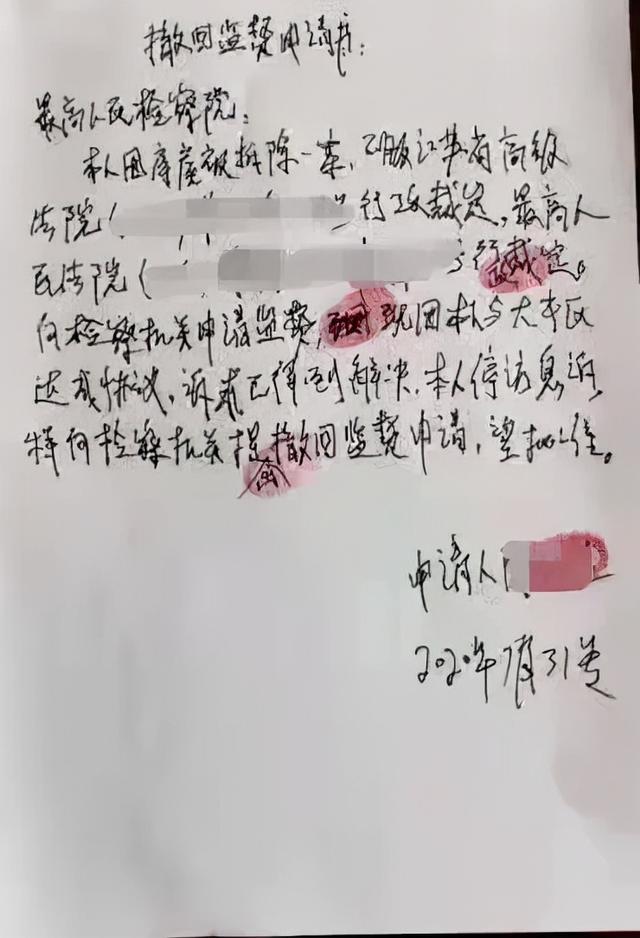 撤回监督申请书:
最高人民检察院:
本人因房屋被拆除一案,不服江苏省高级
法院( 行政裁定,最高人
民法院( 行政裁定。
向检察机关申请监督, 现因本人与大丰区
达成协议,诉求已得到解决,本人停访息诉,
特向检察机关提出撤回监督申请,望批准。
申请人
2020年7月31号